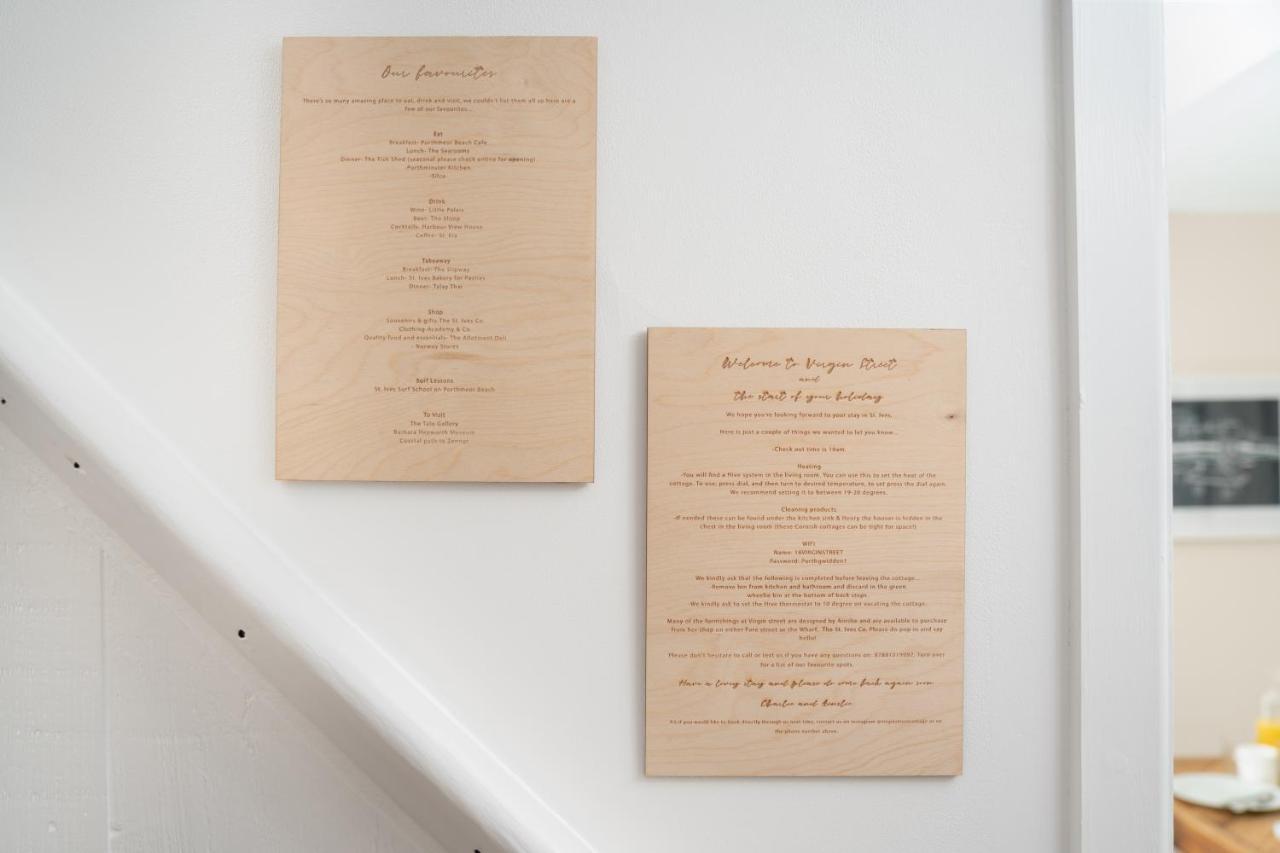 Our favourites
There's so many amazing place to eat, drink and visit, we couldn't list them all so here are a
few of our favourites...
Eat
Breakfast- Porthmeor Beach Cafe
Lunch- The Searooms
Dinner- The Fish Shed (seasonal please check online for opening)
-Porthminster Kitchen
-Silco
Drink
Wine- Little Palais
Beer- The Sloop
Cocktails- Harbour View House
Coffee- St. Eia
Takeaway
Breakfast- The Slipway
Lunch- St. Ives Bakery for Pasties
Dinner- Talay Thai
Shop
Souvenirs & gifts The St. Ives Co.
Clothing-Academy & Co.
Quality food and essentials- The Allotment Deli
- Norway Stores
Surf Lessons
St. Ives Surf School on Porthmeor Beach
To Visit
The Tate Gallery
Barbara Hepworth Museum
Coastal path to Zennor
Welcome to Virgin Street
and
the start of your holiday
We hope you're looking forward to your stay in St. Ives.
Here is just a couple of things we wanted to let you know...
-Check out time is 10am.
Heating
-You will find a Hive system in the living room. You can use this to set the heat of the
cottage. To use; press dial, and then turn to desired temperature, to set press the dial again.
We recommend setting it to between 19-20 degrees.
Cleaning products
-If needed these can be found under the kitchen sink & Henry the hoover is hidden in the
chest in the living room (these Cornish cottages can be tight for space!)
WIFI
Name: 16VIRGINSTREET
Password: Porthgwidden1
We kindly ask that the following is completed before leaving the cottage...
-Remove bin from kitchen and bathroom and discard in the green
wheelie bin at the bottom of back steps.
-We kindly ask to set the Hive thermostat to 10 degree on vacating the cottage.
Many of the furnishings at Virgin street are designed by Ainslie and are available to purchase
from her shop on either Fore street or the Wharf, The St. Ives Co. Please do pop in and say
hello!
Please don't hesitate to call or text us if you have any questions on: Turn over
for a list of our favourite spots.
Have a lovey stay and please do come back again soon
Charlie and Ainslie
P.S if you would like to book directly through us next time, contact us on instagram or on
the phone number above.